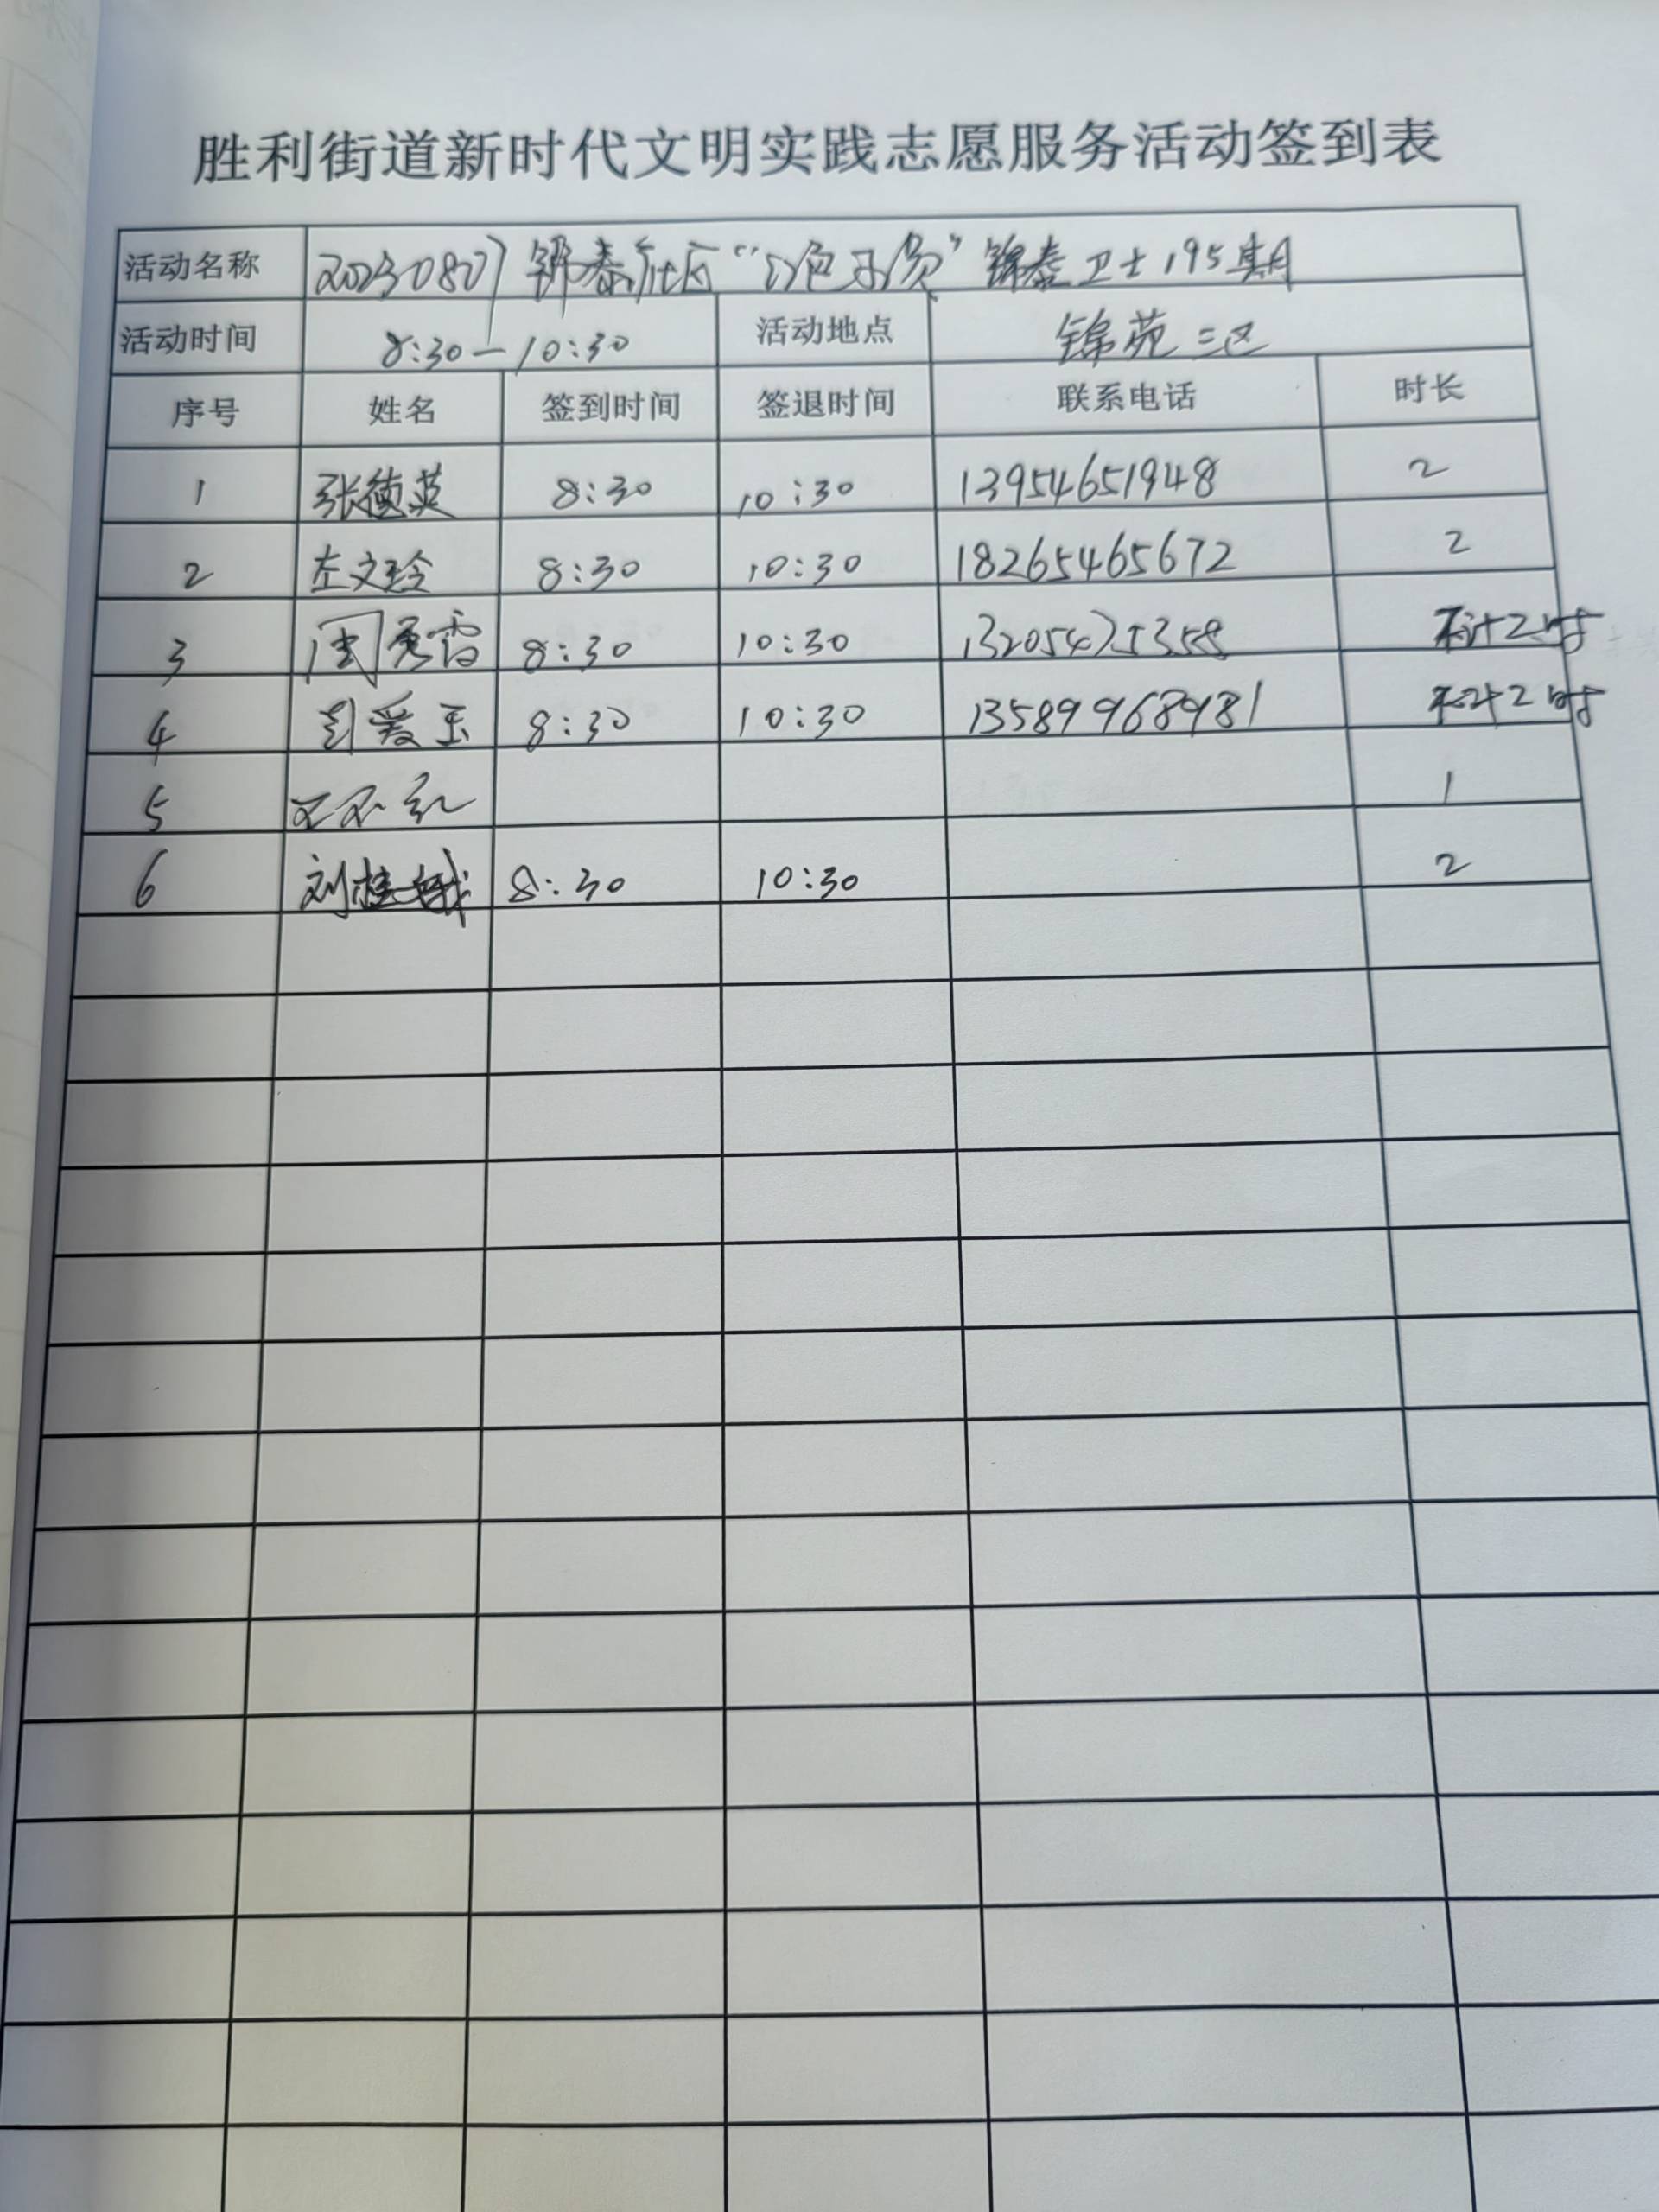 胜利街道新时代文明实践志愿服务活动签到表
活动名称 20230807 锦泰社区“ ” 锦泰卫士195期
活动时间 8:30—10:30 活动地点 锦苑三区
序号 姓名 签到时间 签退时间 联系电话 时长
1 张德英 8:30 10:30 13954651948 2
2 左文玲 8:30 10:30 18265465672 2
3 周秀霞 8:30 10:30 13205475358 不计2时
4 彭爱玉 8:30 10:30 13589968981 不计2时
5 1
6 刘桂娥 8:30 10:30 2